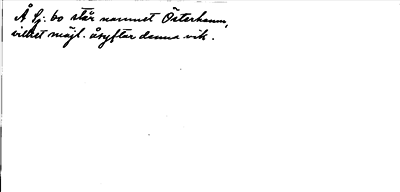 Å Sj. 60 står namnet Österhamn,
vilket möjl. åsyftar denna vik.